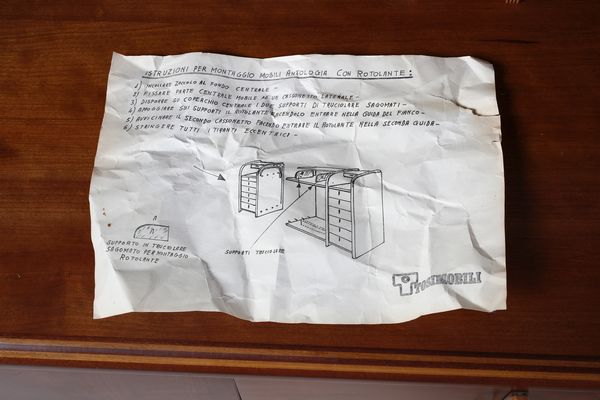 ISTRUZIONI PER MONTAGGIO MOBILI ANTOLOGIA CON ROTOLANTE:
1) INCHIODARE ZOCCOLO AL FONDO CENTRALE -
2) FISSARE PARTE CENTRALE MOBILE AD UN CASSONETTO LATERALE -
3) DISPORRE SU COPERCHIO CENTRALE I DUE SUPPORTI DI TRUCIOLARE SAGOMATI -
4) APPOGGIARE SUI SUPPORTI IL ROTOLANTE FACENDOLO ENTRARE NELLA GUIDA DEL FIANCO -
5) AVVICINARE IL SECONDO CASSONETTO FACENDO ENTRARE IL ROTOLANTE NELLA SECONDA GUIDA -
6) STRINGERE TUTTI I TIRANTI ECCENTRICI -
A
SUPPORTO IN TRUCIOLARE
SAGOMATO PER MONTAGGIO
ROTOLANTE
SUPPORTI TRUCIOLARE
TOSIMOBILI